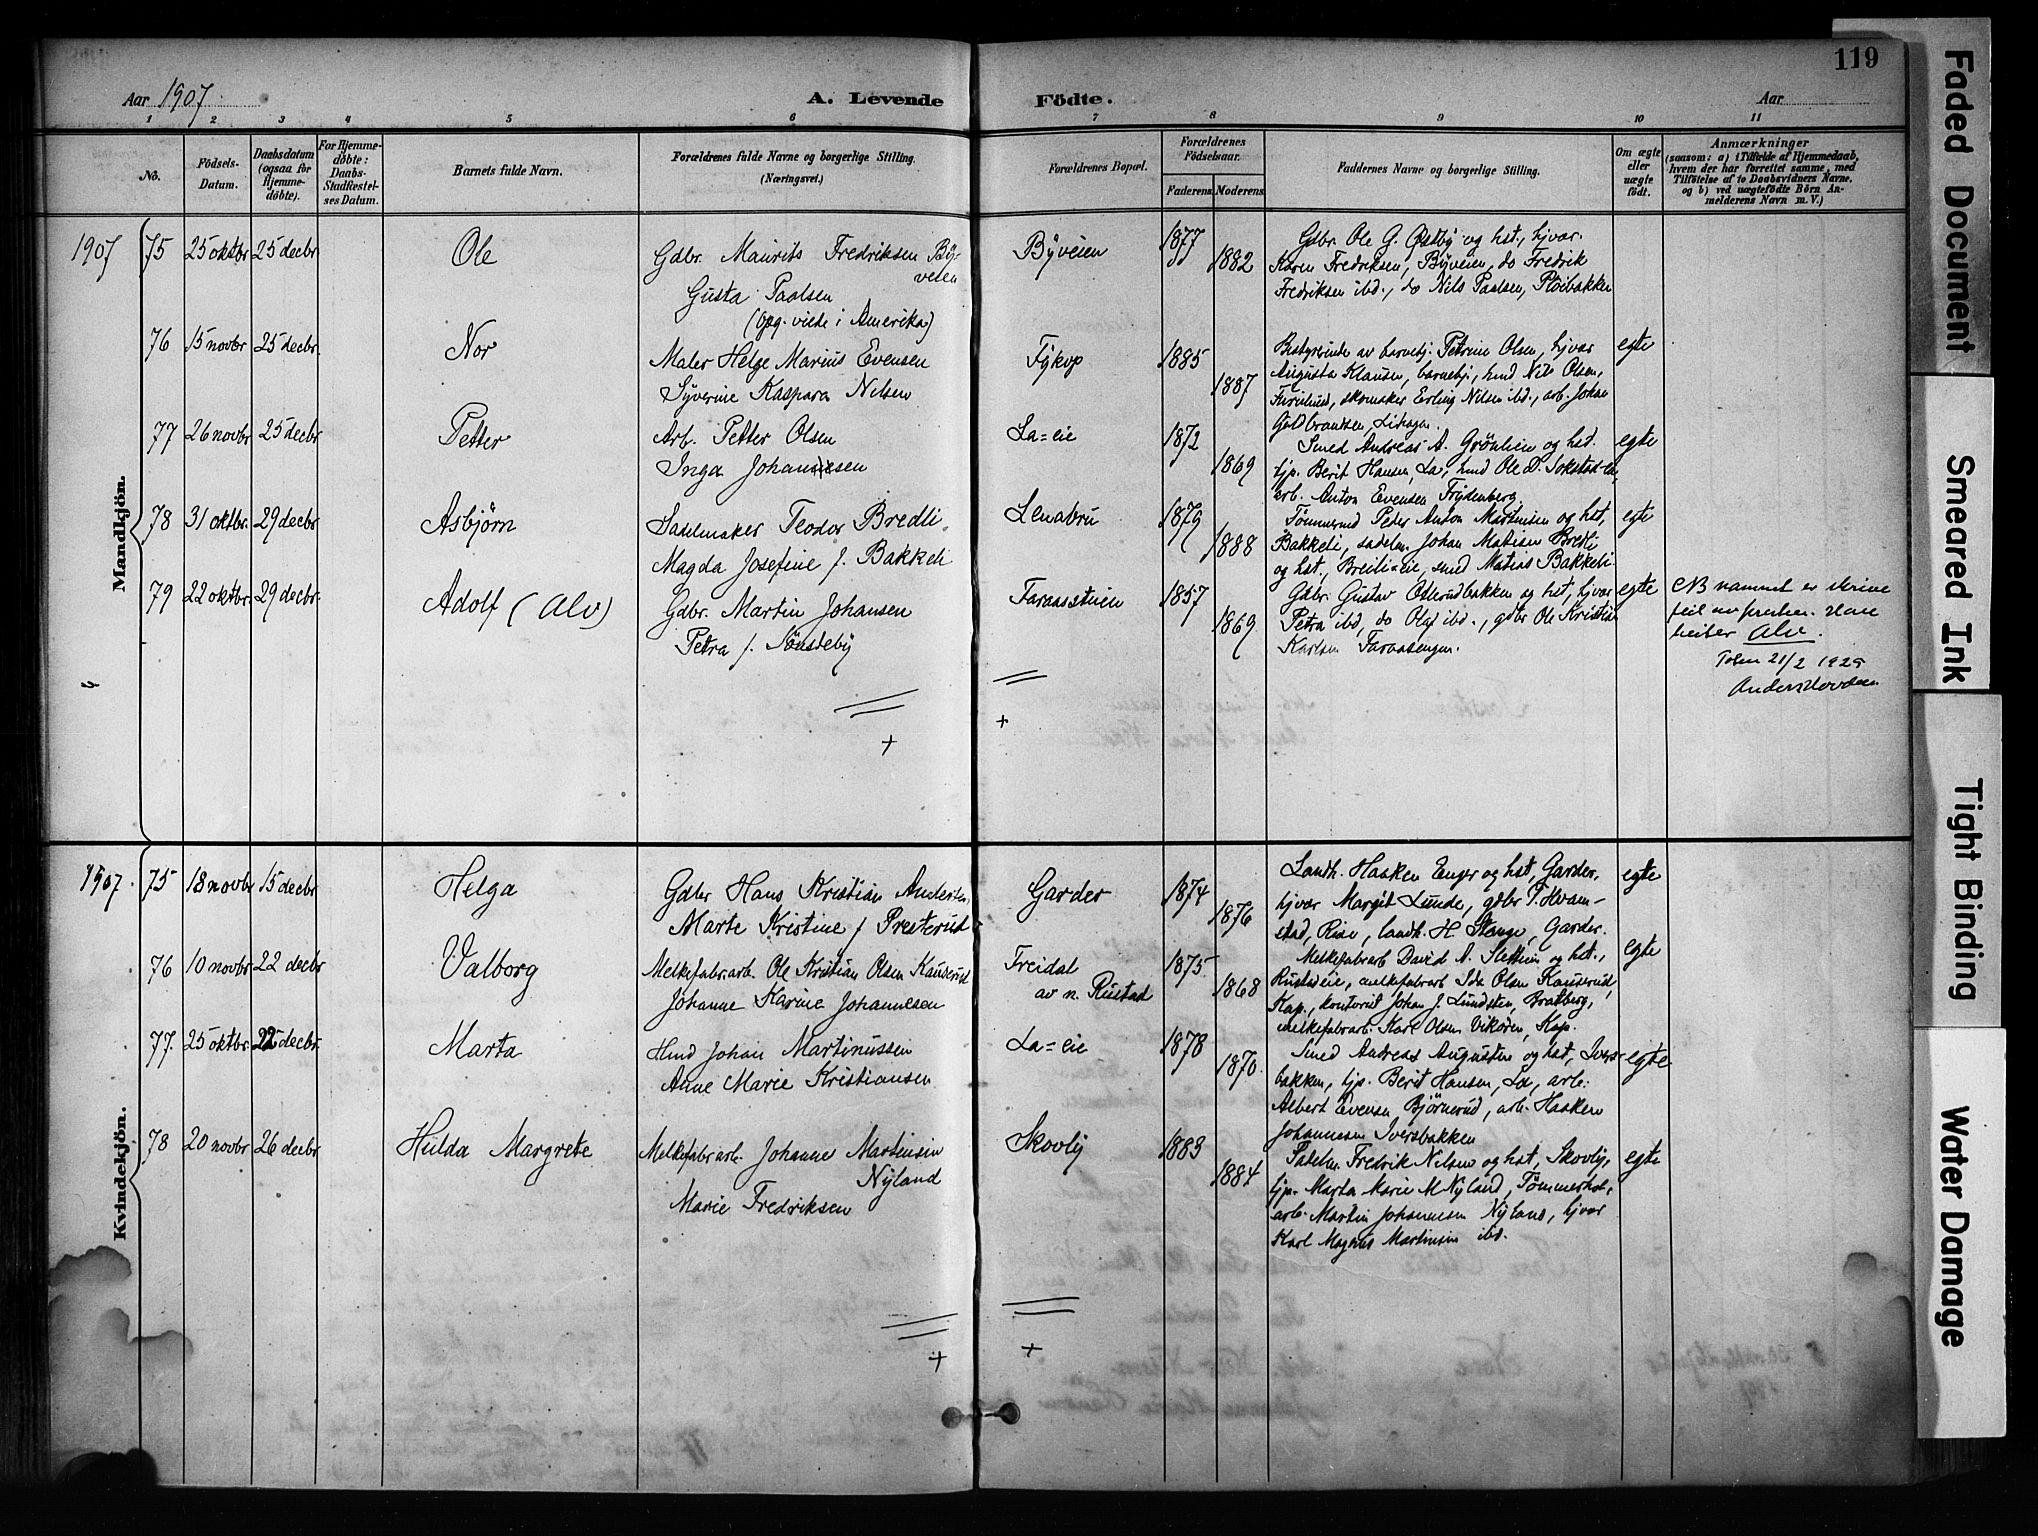 119
Aar 1907.
A. Levende Födte.
Aar
1 2 3 4 5 6 7 8 9 10 11
No.
Födsels-Datum.
Daabsdatum (ogsaa for Hjemme-döbte).
For Hjemme-döbte: Daabs-Stadfæstel-ses Datum.
Barnets fulde Navn.
Forældrenes fulde Navne og borgerlige Stilling. (Næringsvei.)
Forældrenes Bopæl.
Forældrenes Födselsaar.
Faderens Moderens
Faddernes Navne og borgerlige Stilling.
Om ægte eller uægte födt.
Anmærkninger
(saasom: a) i Tilfælde af Hjemmedaab, hvem der har forrettet samme, med Tilföielse af to Daabsvidners Navne, og b) ved uægtefödte Börn Anmelderens Navn m. V.)
Mandkjön.
1907 75 25 oktbr 25 decbr Ole
Gdbr. Maurits Fredriksen Byveien
Gusta Paalsen
(Opg. viede i Amerika)
Byveien 1877 1882
Gdbr. Ole G. Østby og hst., hjvær.
Karen Fredriksen, Byveien, do Fredrik
Fredriksen ibd., do Nils Paalsen, Ploibakken
76 15 novbr 25 decbr. Nor
Maler Helge Marius Evensen
Syverine Kaspara Nilsen
Fykop 1885 1887
Bestyrerinde av barnehj. Petrine Olsen, hjvær
Augusta Klausen, barnehj., smed Nils Olsen,
Furulund, skomaker Erling Nilsen ibd., arb. Johan
Guldbrandsen,
egte
77 26 novbr 25 decbr Petter
Arb. Petter Olsen
Inga Johansen
La=eie 1872 1869
Smed Andreas A. Grönlien og hst.
tjp. Berit Hansen, La, smed Ole D. Sokstad-eie,
arb. Anton Evensen Frydenberg
egte
78 31 oktbr. 29 decbr. Asbjörn
Sadelmaker Teodor Bredli
Magda Josefine f. Bakkeli
Lenabru 1879 1888
Tömmermd Peder Anton Martinsen og hst,
Bakkeli, sadelm. Johan Matisen Bredli
og hst, Breili=eie, smed Matias Bakkeli
egte
79 22 oktbr. 29 decbr. Adolf (Alv)
Gdbr. Martin Johansen
Petra f. Sönsteby
Faraasstuen 1857 1869
Gdbr. Gustav Osterudbakken og hst, hjvær
Petra ibd, do Olaf ibd., gdbr Ole Kristian
Karlsen Faraasengen.
egte
NB namnet er skrive
feil av presten. Han
heiter Alv.
Toten 21/2 1925
Anders Hovden
Kvindekjön.
1907. 75 18 novbr 15 decbr Helga
Gdbr Hans Kristian Andersen
Marte Kristine f Presterud
Garder 1874 1876
Landh. Haaken Enger og hst, Garder,
hjvær Margit Lunde, gdbr T. Hvam-
stad, Rise, landh. H. Stange, Garder.
egte
76 10 novbr 22 decbr Valborg
Melkefabr.arb. Ole Kristian Olsen Kauserud
Johanne Karine Johannesen
Freidal av n. Rustad 1875 1868
Melkefabrarb David A. Slettum og hst.,
Rustadeie, melkefabrarb Ida Olsen Kauserud,
Kap., kontorist Johan J. Lundsten, Bratberg,
melkefabrarb. Karl Olsen Vikoren, Kap.
egte
77. 25 oktbr. 22 decbr. Marta
Smd Johan Martinussen
Anne Marie Kristiansen
La=eie 1878 1870.
Smed Andreas Augustin og hst, Ivers-
bakken, tjp. Berit Hansen, La, arb.
Albert Evensen Björnerud, arb. Haaken
Johannesen Iversbakken
egte
78 20 novbr 26 decbr Hulda Margrete
Melkefabrarb. Johannes Martinsen
Nyland
Marie Fredriksen
Skovly 1883 1884
Sadelm. Fredrik Nilsen og hst, Skovly,
tjp. Marta Marie M Nyland, Tömmerhol,
arb. Martin Johannesen Nyland, hjvær
Karl Magnus Martinsen ibd.
egte
Faded Document
Smeared Ink
Tight Binding
Water Damage